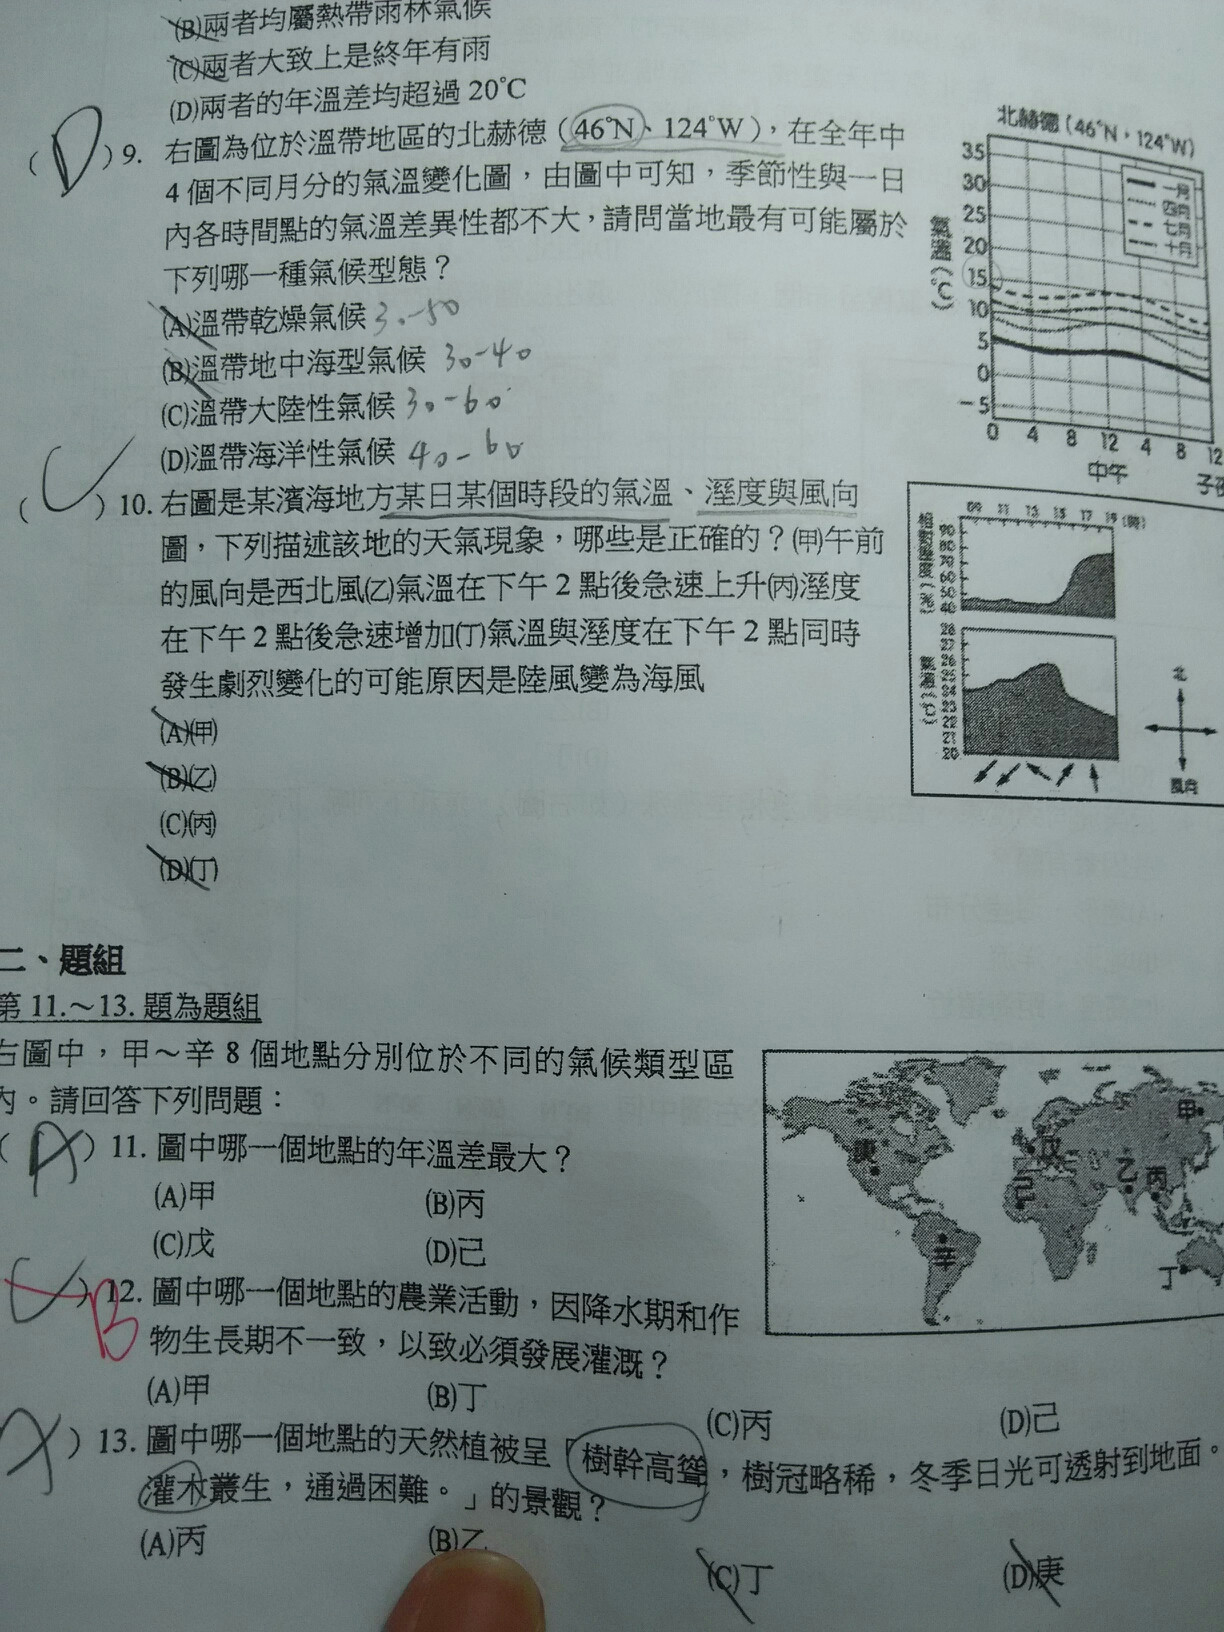 (B)兩者均屬熱帶雨林氣候
(C)兩者大致上是終年有雨
(D)兩者的年溫差均超過 20℃
( D ) 9. 右圖為位於溫帶地區的北赫德（46°N、124°W），在全年中
4 個不同月分的氣溫變化圖，由圖中可知，季節性與一日
內各時間點的氣溫差異性都不大，請問當地最有可能屬於
下列哪一種氣候型態？
(A)溫帶乾燥氣候 30-50
(B)溫帶地中海型氣候 30-40
(C)溫帶大陸性氣候 30-60
(D)溫帶海洋性氣候 40-60
北赫德（46°N，124°W）
氣溫(℃)
35
30
25
20
15
10
5
0
-5
一月
四月
七月
十月
0 4 8 12 4 8 12
中午
( C ) 10. 右圖是某濱海地方某日某個時段的氣溫、溼度與風向
圖，下列描述該地的天氣現象，哪些是正確的？(甲)午前
的風向是西北風(乙)氣溫在下午 2 點後急速上升(丙)溼度
在下午 2 點後急速增加(丁)氣溫與溼度在下午 2 點同時
發生劇烈變化的可能原因是陸風變為海風
(A)(甲)
(B)(乙)
(C)(丙)
(D)(丁)
09 11 13 15 17 19 (時)
相對溼度(%)
90
80
70
60
50
40
氣溫(℃)
28
27
26
25
24
23
22
21
20
北
風向
二、題組
第 11.～13. 題為題組
右圖中，甲～辛 8 個地點分別位於不同的氣候類型區
內。請回答下列問題：
( A ) 11. 圖中哪一個地點的年溫差最大？
(A)甲 (B)丙
(C)戊 (D)己
甲
庚
戊
己
乙
丙
辛
丁
( C ) B 12. 圖中哪一個地點的農業活動，因降水期和作
物生長期不一致，以致必須發展灌溉？
(A)甲 (B)丁 (C)丙 (D)己
( A ) 13. 圖中哪一個地點的天然植被呈「樹幹高聳，樹冠略稀，冬季日光可透射到地面。
灌木叢生，通過困難。」的景觀？
(A)丙 (B)乙 (C)丁 (D)庚